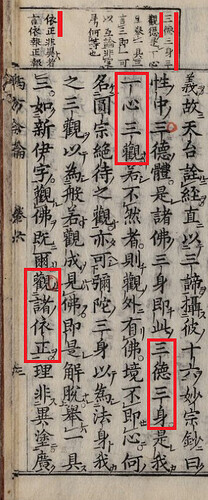 依正非異者
言依報正報
義故天台註經直以三諦攝彼十六妙宗鈔曰
性中三德體是諸佛三身即此三德三身是我
一心三觀若不然者則觀外有佛境不即心何
名圓宗絕待之觀亦可彌陀三身以為法身我
之三觀以為般若觀成見佛即是解脫舉一具
三如新伊字觀佛既爾觀諸依正理非異塗廣